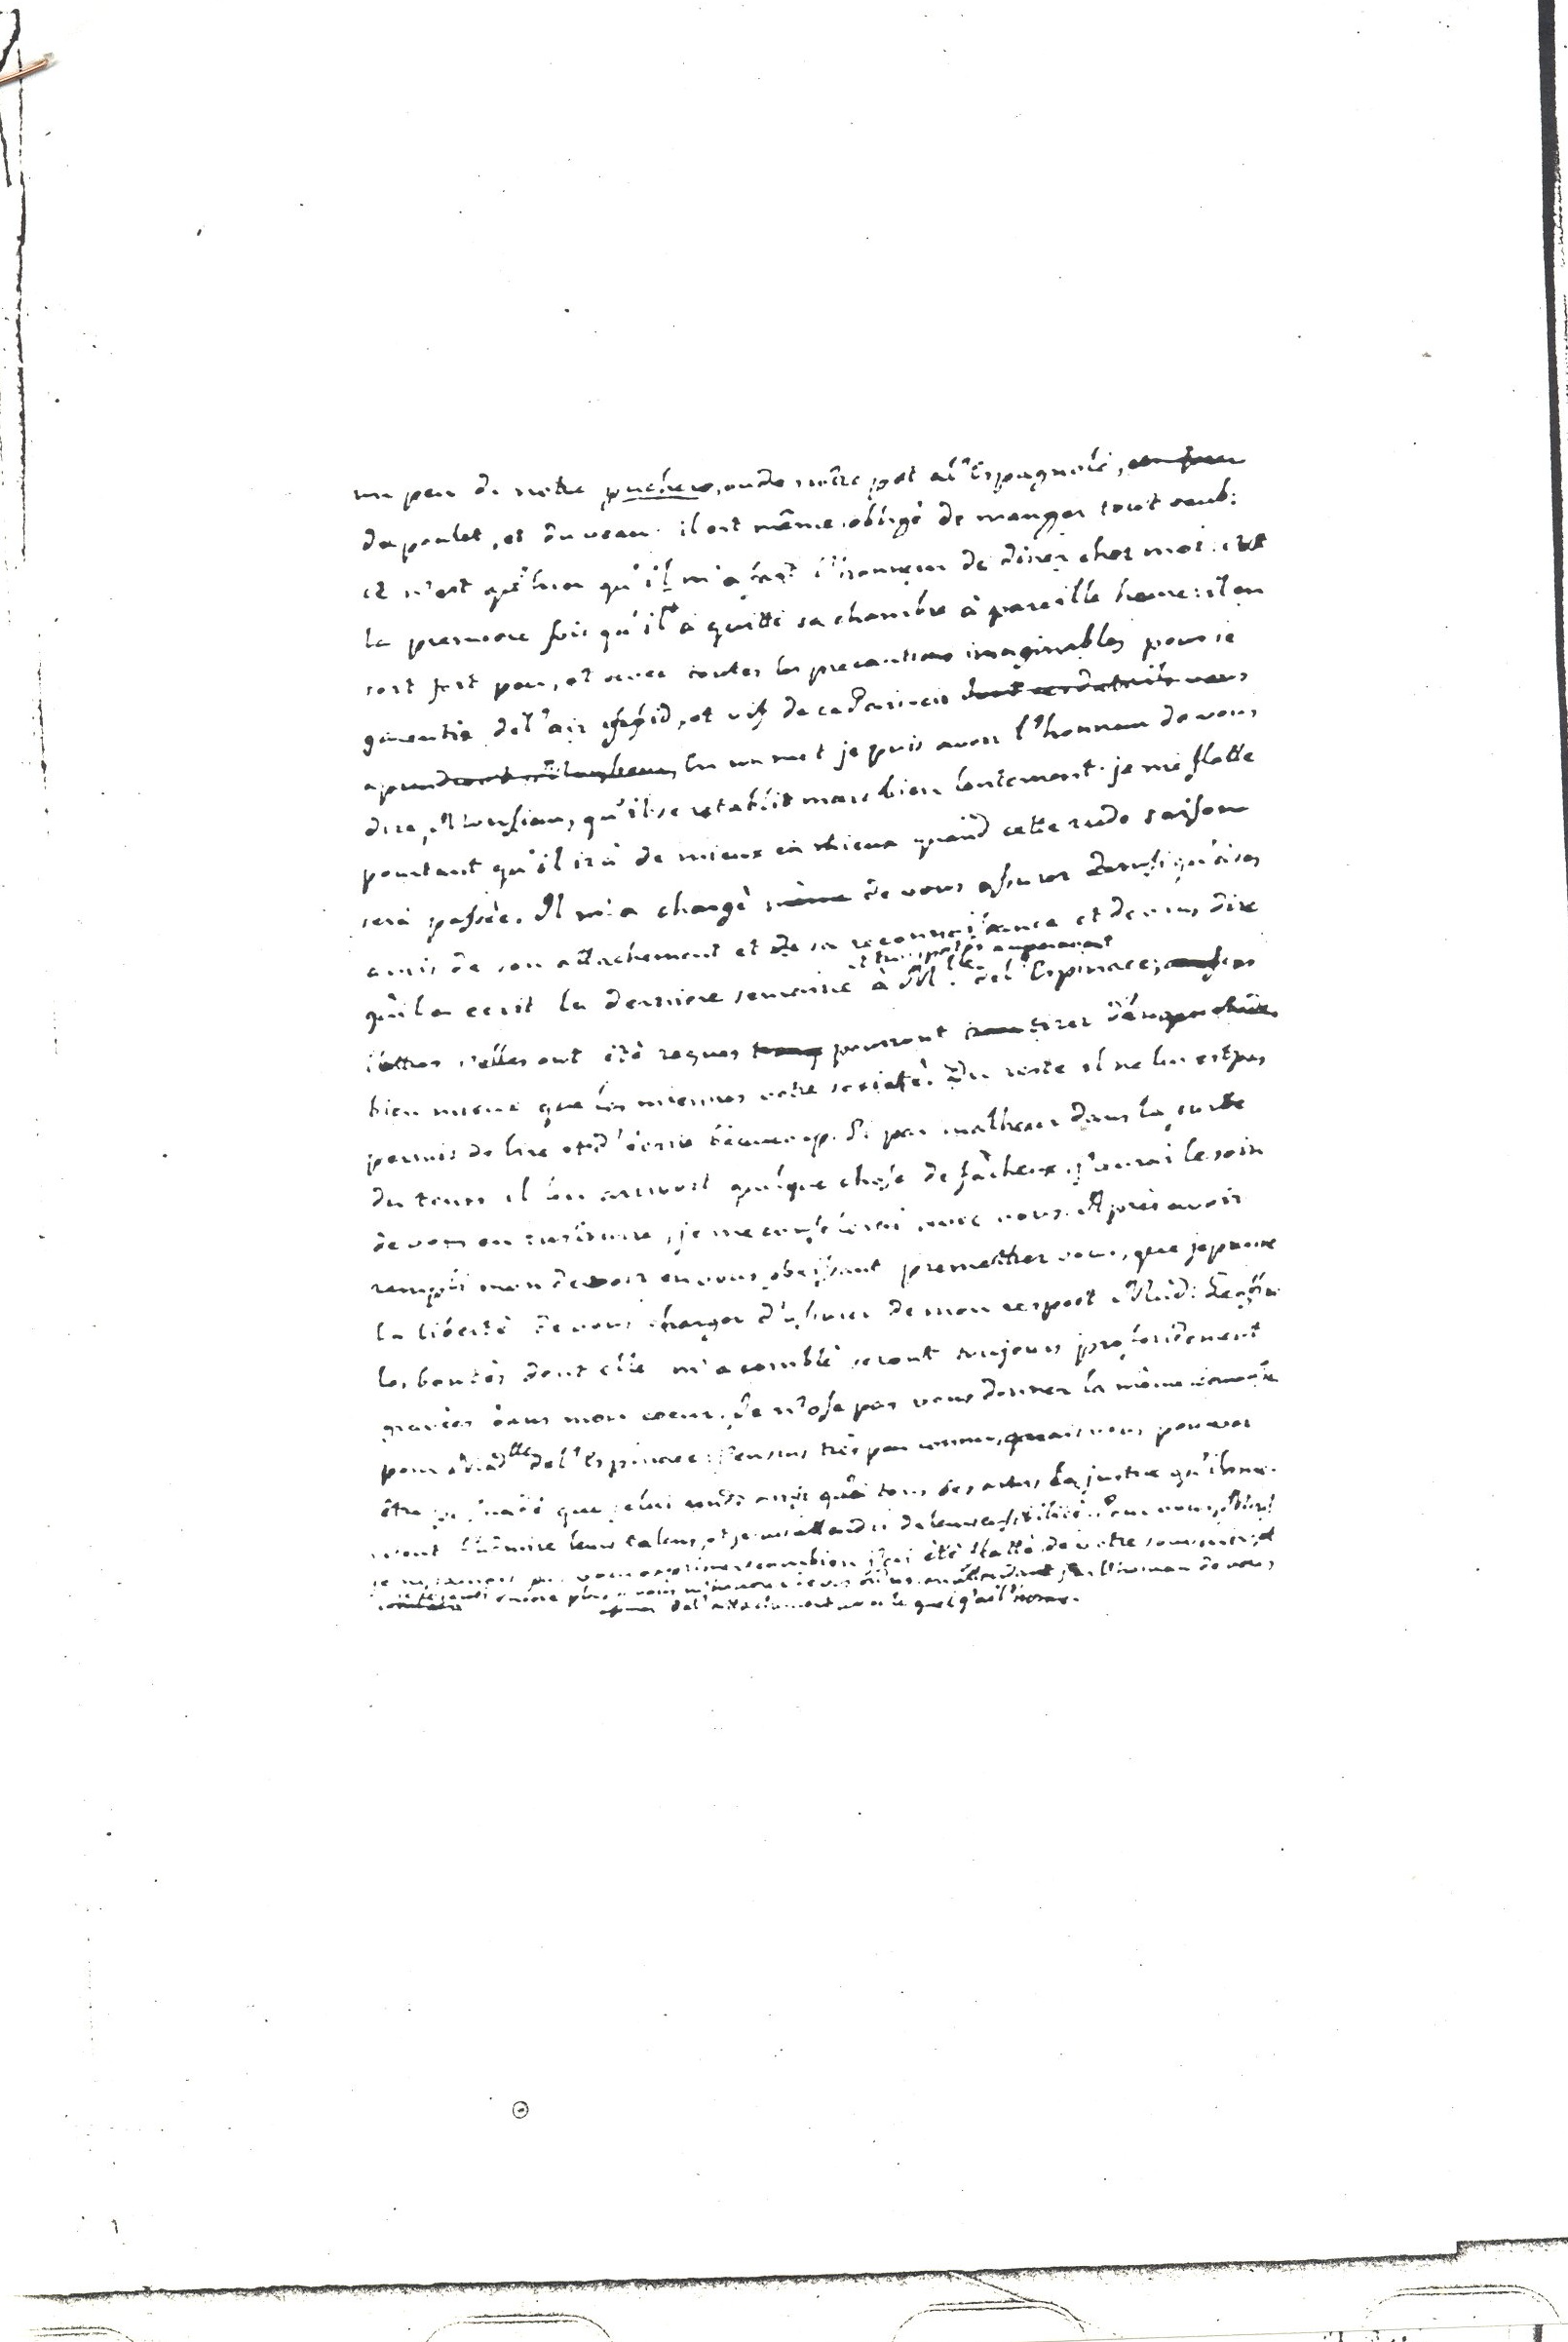 un peu de notre puchero, ou de nôtre pot al'Espagnole,
du poulet, et du veau. il est même obligé de manger tout seul:
ce n'est qu'hier qu'il m'a fait l'honneur de diner chez moi: c'est
la premiere fois qu'il a quitté sa chambre à pareille heure: il en
sort fort peu, et avec toutes les precautions imaginables pour se
garentir del'air froid, et vif de ce Païs-ci dont ces details vous
aprendront En un mot je puis avoir l'honneur de vous
dire, Monsieur, qu'il se retablit mais bien lentement. je me flatte
pourtant qu'il ira de mieux en mieux quand cette rude saison
sera passée. Il m'a chargé même de vous assurer ainsi qu'à ses
amis de son attachement et de sa reconnaissance et de vous dire
qu'il a ecrit la derniere semaine à M.lle del'Espinace;
et auparavant
lettres s'elles ont été reçues pourront tirer d'inquietude
bien mieux que les miennes votre societé. Du reste il ne lui est pas
permis de lire et d'écrire beaucoup. Si par malheur dans la suite
du tems il lui arrivoit quelque chose de fâcheux, j'aurai le soin
de vous en instruire, je me consolerai avec vous. Après avoir
rempli mon devoir en vous obeissant permettez vous, que je prenne
la liberté de vous charger d'assurer de mon respect Mad:
les bontés dont elle m'a comblé seront toujours profondement
gravées dans mon coeur. Je n'ose pas vous donner la même
pour Mad.lle del'Espinace: j'en suis très peu connu, mais vous pouvez
être persuadé que je lui rends ainsi qu'à tous ses autres la justice qu'ils me-
ritent j'admire leurs talens, et je m'attendris de leur sensibilité. Pour vous,
je ne saurois pas vous exprimer combien j'ai été flatté de votre souvenir, et
je le serai encore plus si vous m'honorez de vos ordres. en attendant j'ai l'honneur de vous
assurer del'attachement avec le quel j'ai l'honn.